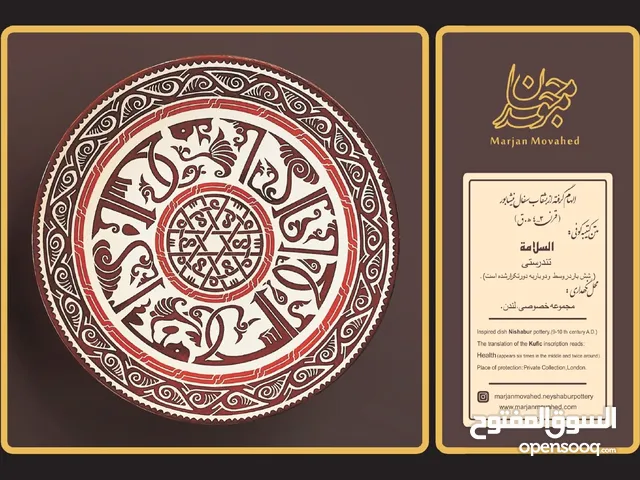 مرجان موحد
Marjan Movahed
الهام گرفته از بشقاب سفال نیشابور
(قرن ۳-۴ ه.ق)
متن کتیبه کوفی:
السلامة
تندرستی
(شش بار در وسط و دوبار به دور تکرار شده است).
محل نگهداری:
مجموعه خصوصی، لندن.
Inspired dish Nishabur pottery.(9-10 th century A.D.)
The translation of the Kufic inscription reads:
Health (appears six times in the middle and twice around)
Place of protection: Private Collection, London.
marjanmovahed.neyshaburpottery
www.marjanmovahed.com
السوق المفتوح
opensooq.com